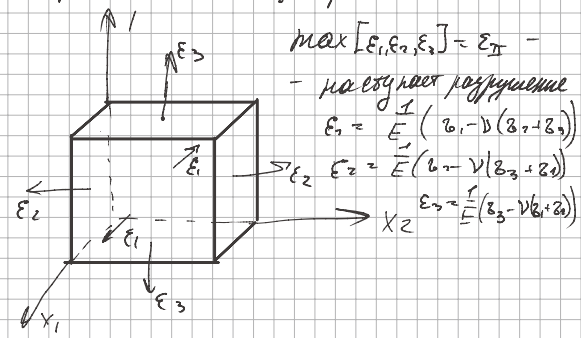 max[ε₁,ε₂,ε₃] = ε_II -
- наступает разрушение
ε₁ = 1/E (σ₁ - ν(σ₂+σ₃))
ε₂ = 1/E (σ₂ - ν(σ₃+σ₁))
ε₃ = 1/E (σ₃ - ν(σ₁+σ₂))
ε₃
ε₁
ε₂
ε₂
ε₁
x₂
ε₃
x₁